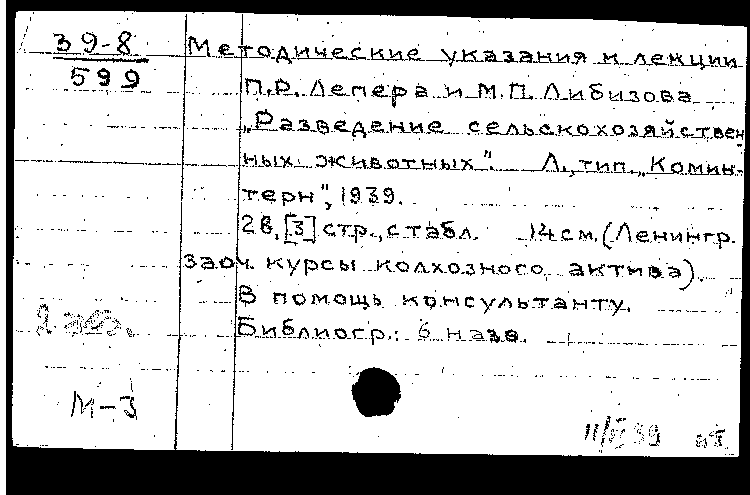 39-8
599
Методические указания к лекции
П.Р. Лепера и М.П. Либизова
„Разведение сельскохозяйствен
ных животных“. Л., тип. „Комин-
терн“, 1939.
28, [3] стр., с табл. 14 см. (Ленингр.
заоч. курсы колхозного актива).
В помощь консультанту.
Библиогр.: 6 назв.
2 экз.
М-3